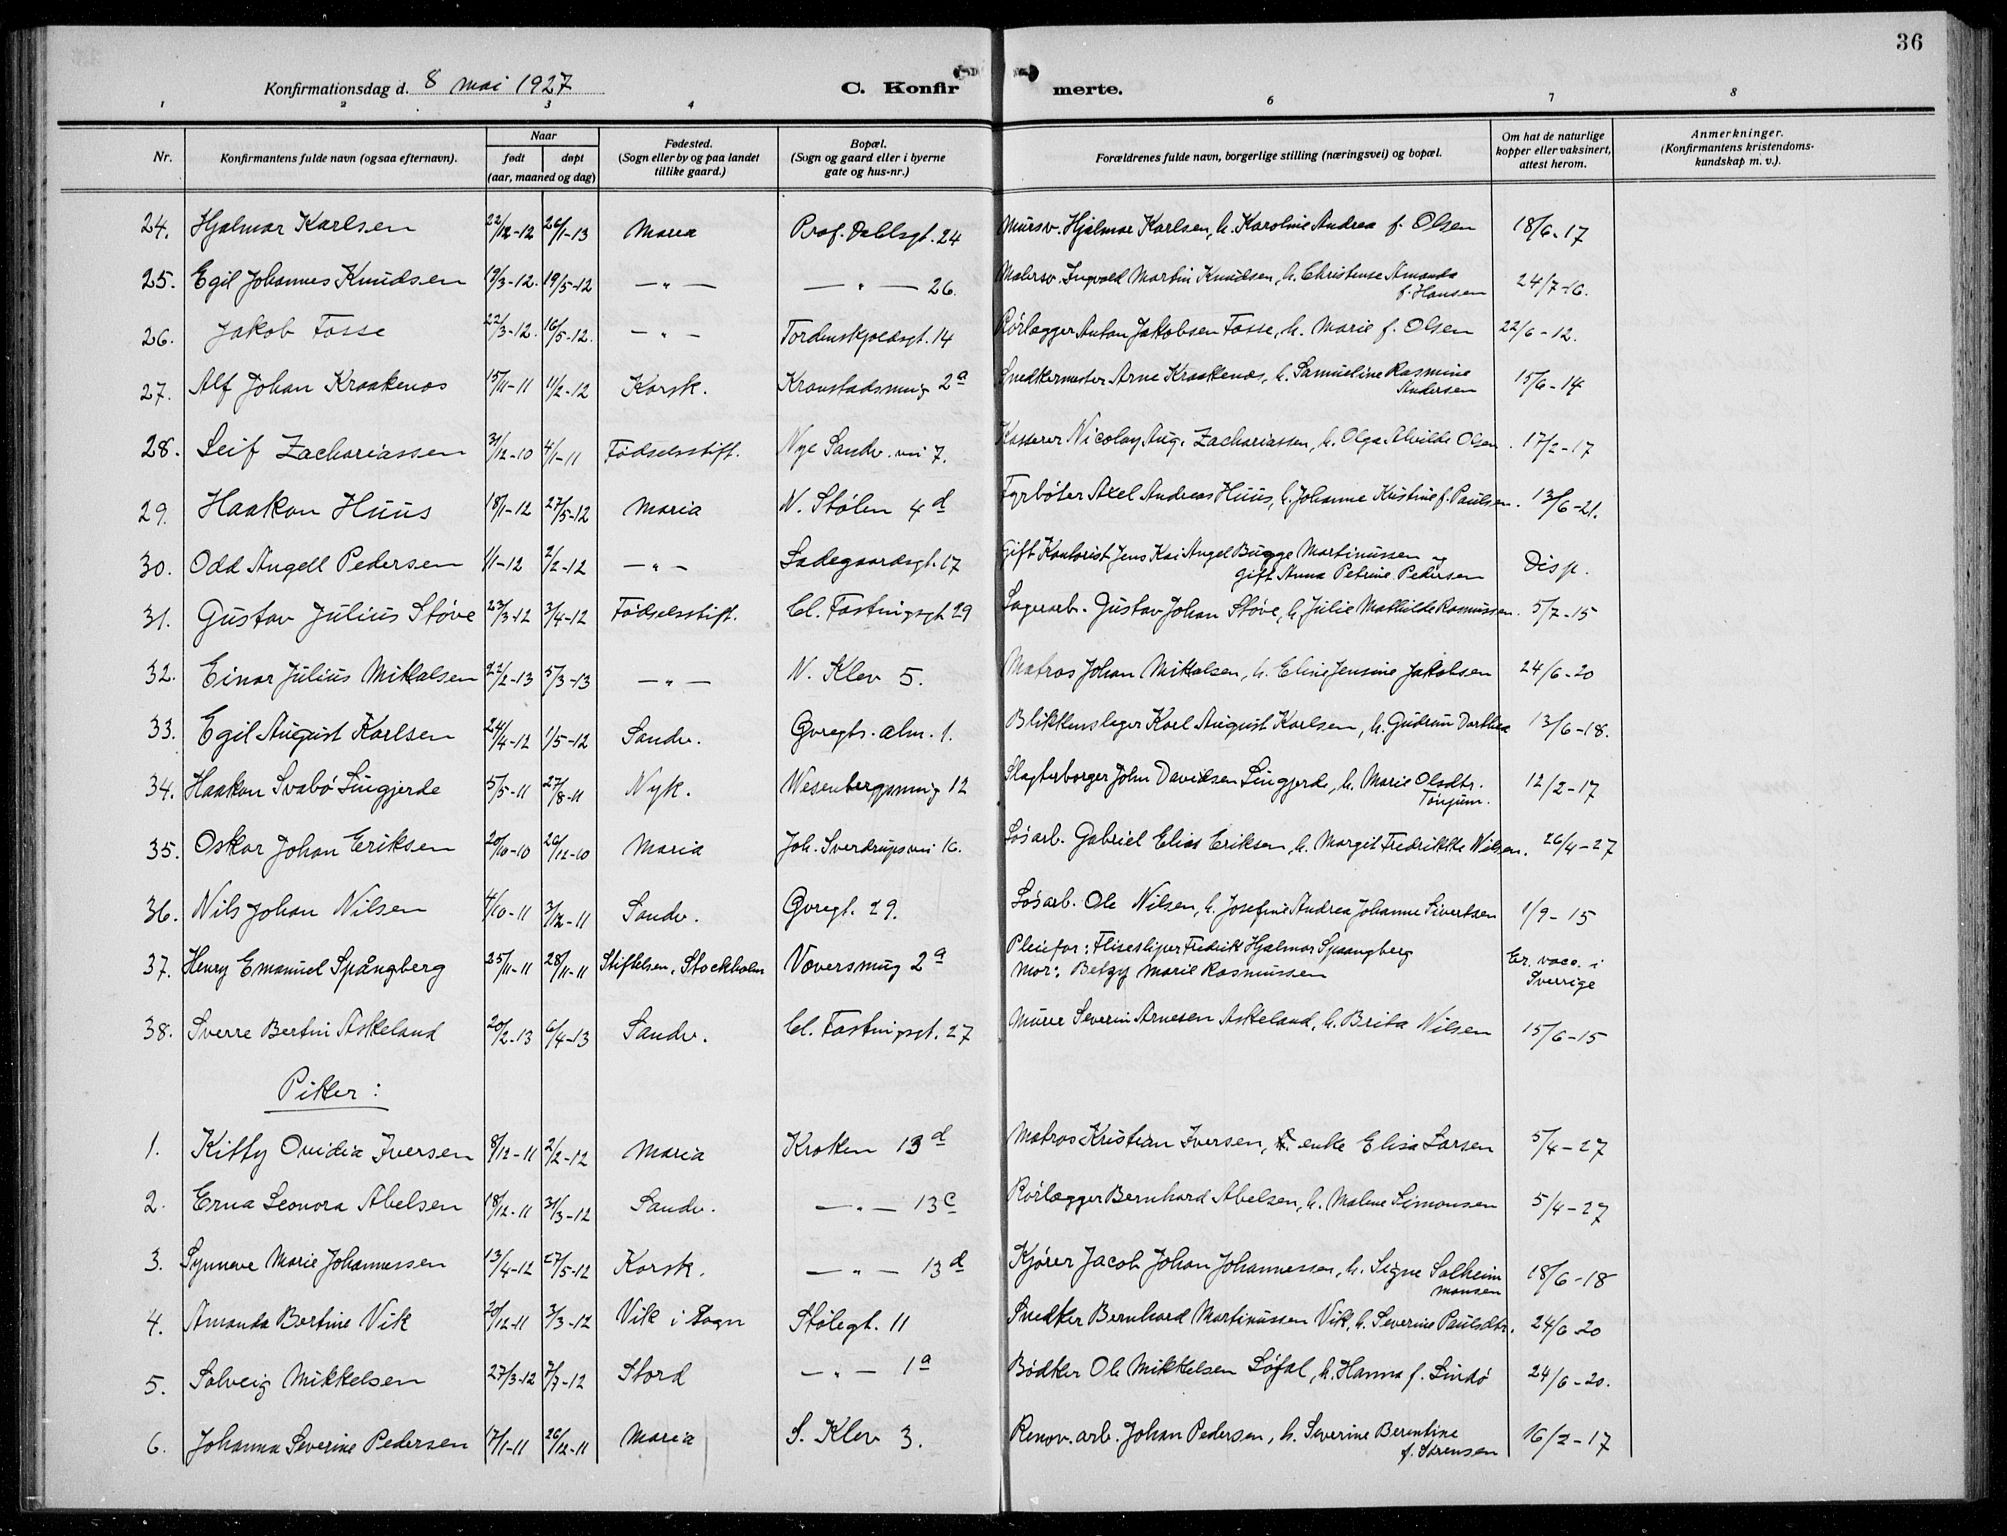 36
Konfirmationsdag d. 8 mai 1927
C. Konfirmerte.
1 2 3 4 6 7 8
Nr.
Konfirmantens fulde navn (ogsaa efternavn).
Naar
født døpt
(aar, maaned og dag)
Fødested.
(Sogn eller by og paa landet
tillike gaard.)
Bopæl.
(Sogn og gaard eller i byerne
gate og hus-nr.)
Forældrenes fulde navn, borgerlige stilling (næringsvei) og bopæl.
Om hat de naturlige
kopper eller vaksinert,
attest herom.
Anmerkninger.
(Konfirmantens kristendoms-
kundskap m. v.).
24. Hjalmar Karlsen 22/12-12 26/1-13 Maria Prof. Dahlsgt. 24 Mursv. Hjalmar Karlsen, h. Karoline Andrea f. Olsen 18/6-17
25. Egil Johannes Knudsen 19/3-12. 19/5-12 — " — — " — 26. Malersv. Ingvald Martin Knudsen, h. Christense Amanda
f. Hansen 24/7-16.
26. Jakob Fosse 22/3-12. 16/5-12. — " — Tordenskjoldsgt. 14 Rörlægger Anton Jakobsen Fosse, h. Marie f. Olsen 22/6-12.
27. Alf Johan Kraakenes 15/11-11 11/2-12 Korsk. Kronstadsmug 2a Snedkermester Arne Kraakenes, h. Samueline Rasmine
Andersen 15/6-14
28. Leif Zachariassen 31/12-10 4/1-11 Födselsstift. Nye Sandv. vei 7. Kasserer Nicolay Aug. Zachariassen, h. Olga Alvilde Olsen. 17/2-17
29. Haakon Huus 18/1-12 27/5-12 Maria N. Stølen 4d Fyrböter Axel Andreas Huus, h. Johanne Kristine f. Paulsen. 13/6-21.
30. Odd Angell Pedersen 1/1-12 2/2-12 — " — Ladegaardsgt. 17 Gift Kontorist Jens Kai Angel Bugge Martinussen og
gift Anna Petrine Pedersen Disp.
31. Gustav Julius Støve 23/3-12 3/4-12 Födselsstift. Cl. Fastingsgt 29 Lagerarb. Gustav Johan Støve, h. Julie Mathilde Rasmussen. 5/7-15
32. Einar Julius Mikkalsen 22/2-13 5/3-13 — " — N. Klev 5. Matros Johan Mikkalsen, h. Eline Jensine Jakobsen 24/6-20
33. Egil August Karlsen 24/4-12 1/5-12 Sandv. Gvregts. alm. 1. Blikkenslager Karl August Karlsen, h. Gudrun Dorthea 13/6-18.
34. Haakon Svabø Lingjerde 5/5-11 27/8-11 Nyk. Wesenbergsmug 12 Slagterborger John Davidsen Lingjerde, h. Marie Olsdtr.
Tönjum. 12/2-17
35. Oskar Johan Eriksen 20/10-10 26/12-10 Maria Joh. Sverdrupsvei 16. Løsarb. Gabriel Elias Eriksen, h. Margit Fredrikke Nilsen. 26/4-27
36. Nils Johan Nilsen 4/10-11 3/12-11 Sandv. Gvregt. 29. Løsarb. Ole Nilsen, h. Josefine Andrea Johanne Sivertsen 1/9-15
37. Henry Emanuel Spångberg 25/11-11 28/11-11 Stiftelsen, Stockholm Vaversmug 2a Pleiefor: Flisesliper Fredrik Hjalmar Spaangberg
Mor: Betzy Marie Rasmussen Er. vacc. i
Sverrige
38. Sverre Bertin Askeland 20/2-13 6/4-13 Sandv. Cl. Fastingsgt. 27 Murer Severin Arnesen Askeland, h. Brita Nilsen 15/6-15
Piker:
1. Kitty Ovidia Iversen 8/12-11 2/2-12 Maria Kroken 13d Matros Kristian Iversen, enke Elisa Larsen 5/4-27
2. Erna Leonora Abelsen 18/12-11 31/3-12 Sandv. — " — 13c Rörlægger Bernhard Abelsen, h. Malene Simonsen 5/4-27
3. Synneve Marie Johannessen 13/4-12 27/5-12 Korsk. — " — 13d Kjører Jacob Johan Johannessen, h. Signe Solheim
Monsen 18/6-18
4. Amanda Bertine Vik 20/12-11 3/3-12 Vik i Sogn Stølegt. 11 Snedker Bernhard Martinussen Vik, h. Severine Paulsdtr. 24/6-20
5. Solveig Mikkelsen 27/3-12 7/7-12 Stord — " — 1a Bödker Ole Mikkelsen Løfal, h. Hanna f. Lindö 24/6-20.
6. Johanna Severine Pedersen 17/1-11 26/12-11 Maria S. Klev 3. Renov. arb. Johan Pedersen, h. Severine Berentine
f. Sörensen 16/2-17